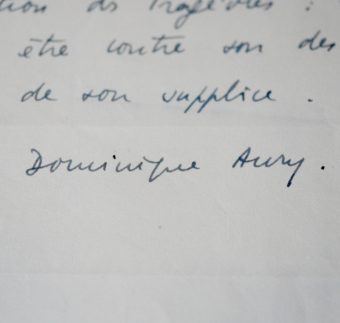 tion des Tragédies :
être contre son des
de son supplice .
Dominique Aury .